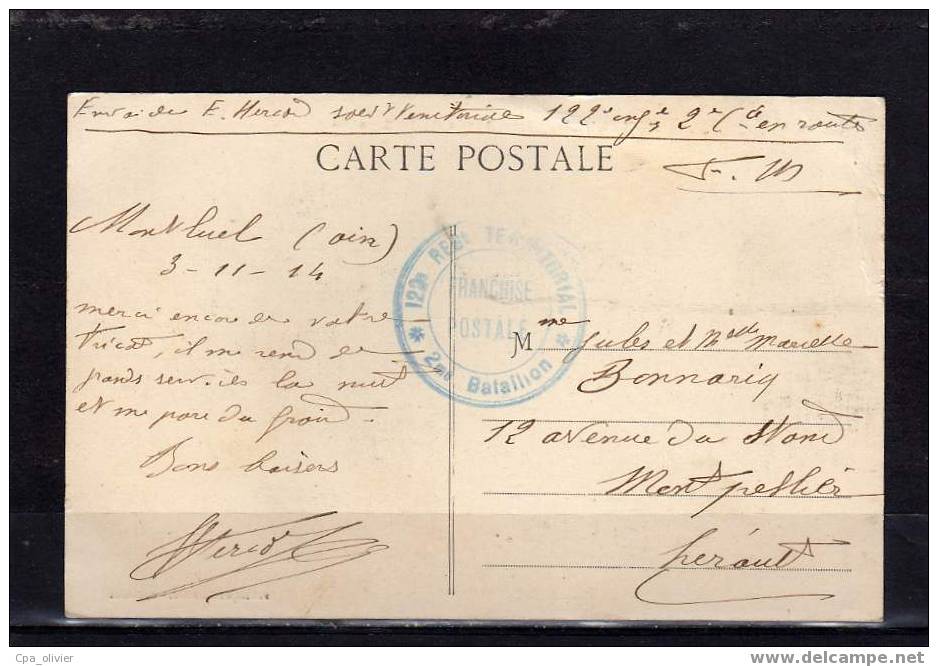 Envoi de E. Hercod soldt territoriale 122e rgt 2e Cie en route
CARTE POSTALE
F. M
Montluel (Ain)
3-11-14
merci encore de votre
tricot, il me rend de
grands services la nuit
et me pare du froid.
Bons baisers
Hercod
122e REGt TERRITORIAL
FRANCHISE
POSTALE
2me Bataillon
Mme Jules et Melle Marielle
Bonnariq
12 avenue du Stand
Montpellier
Hérault
Cpa_olivier
delcampe.net